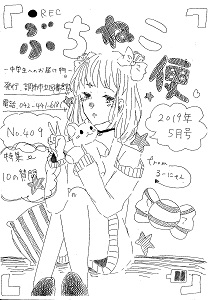 REC
ぶちねこ便
〜中学生へのお届け物〜
発行 調布市立図書館
電話 042-441-6181
2019年
5月号
No.409
特集
10の質問
from